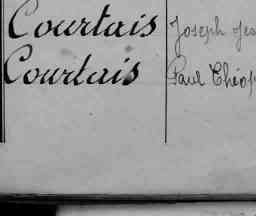 Courtais Joseph Jea
Courtais Paul Théop